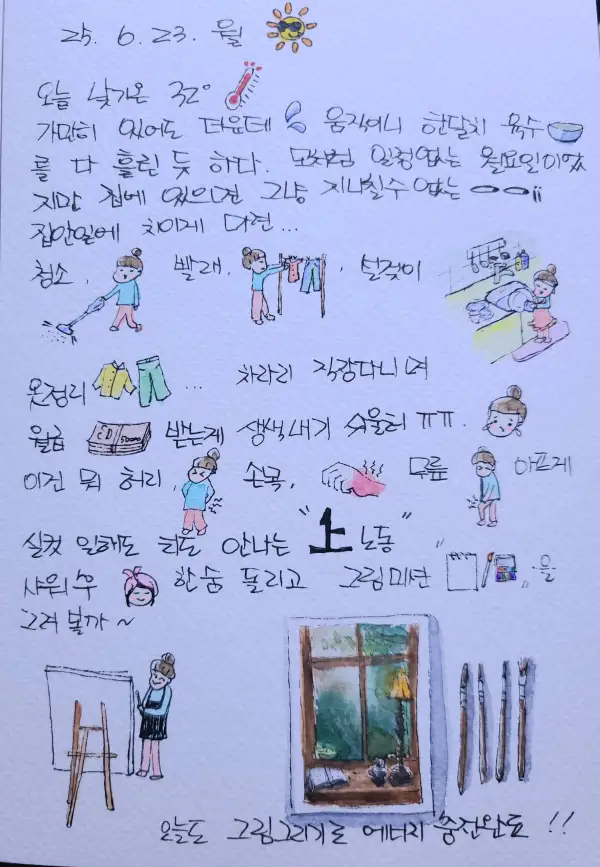 25. 6. 23. 월
오늘 낮기온 32°
가만히 있어도 더운데 움직이니 한달치 육수
를 다 흘린 듯 하다. 모처럼 일정없는 월요일이었
지만 집에 있으면 그냥 지나칠수 없는
집안일에 치이게 마련...
청소, 빨래, 설겆이
옷정리 ... 차라리 직장다니며
월급 50000 받는게 생색내기 쉬울터 ㅠㅠ.
이건 뭐 허리, 손목, 무릎 아프게
실컷 일해도 티도 안나는 "上노동"
샤워후 한숨 돌리고 그림미션 " "을
그려볼까~
오늘도 그림그리기로 에너지 충전완료 !!